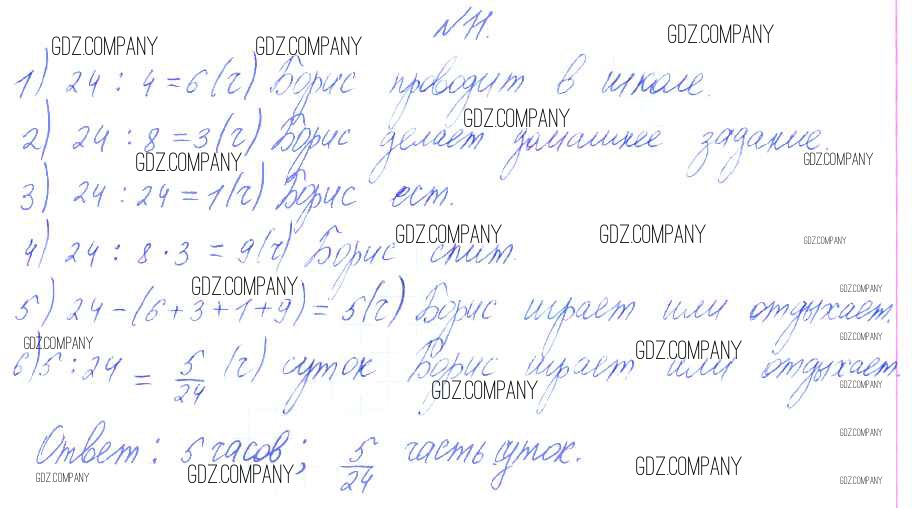 №11.
GDZ.COMPANY GDZ.COMPANY GDZ.COMPANY
1) 24 : 4 = 6 (ч) Борис проводит в школе.
GDZ.COMPANY
2) 24 : 8 = 3 (ч) Борис делает домашнее задание.
GDZ.COMPANY GDZ.COMPANY
3) 24 : 24 = 1 (ч) Борис ест.
GDZ.COMPANY GDZ.COMPANY GDZ.COMPANY
4) 24 : 8 · 3 = 9 (ч) Борис спит.
GDZ.COMPANY GDZ.COMPANY
5) 24 - (6 + 3 + 1 + 9) = 5 (ч) Борис играет или отдыхает.
GDZ.COMPANY GDZ.COMPANY GDZ.COMPANY
6) 5 : 24 = 5/24 (ч) суток Борис играет или отдыхает.
GDZ.COMPANY GDZ.COMPANY
GDZ.COMPANY
Ответ: 5 часов; 5/24 часть суток.
GDZ.COMPANY GDZ.COMPANY GDZ.COMPANY GDZ.COMPANY